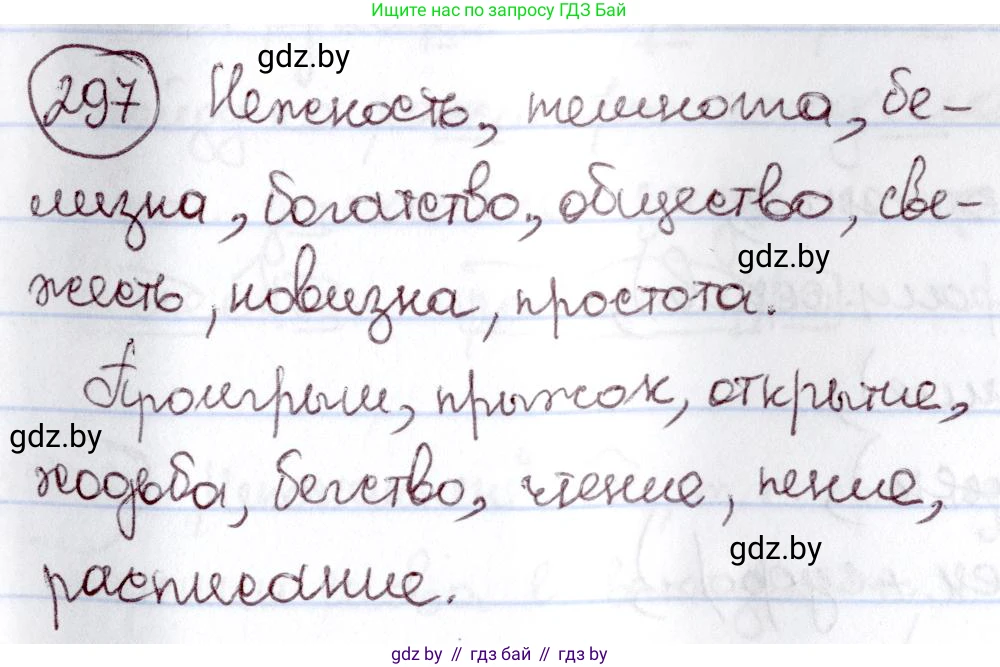 Ищите нас по запросу ГДЗ Бай
gdz.by
297 Нежность, темнота, бе-
лизна, богатство, общество, све-
gdz.by
жесть, новизна, простота.
Проигрыш, прыжок, открытие,
gdz.by
ходьба, бегство, чтение, пение,
gdz.by
расписание.
gdz.by // гдз бай // gdz.by